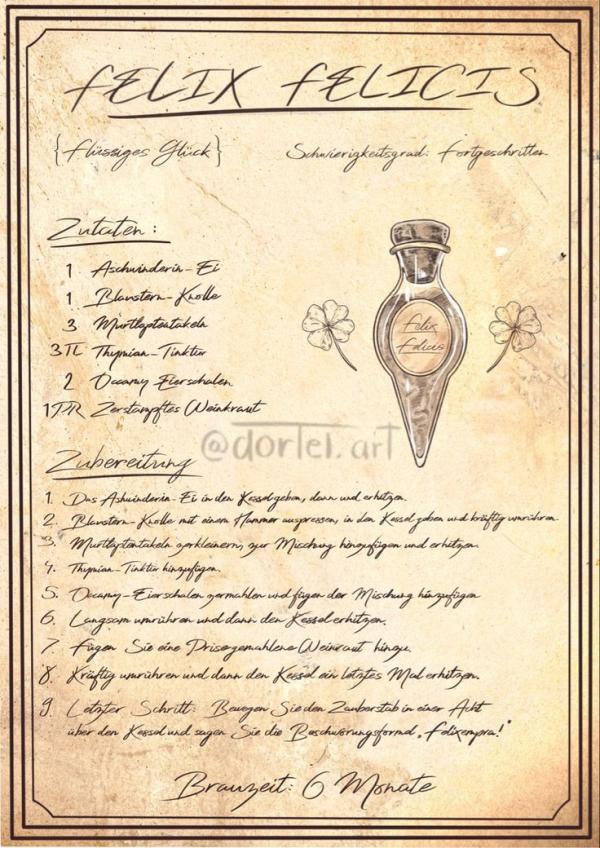 FELIX FELICIS
{Flüssiges Glück}
Schwierigkeitsgrad: Fortgeschritten
Zutaten:
1 Aschwinderin-Ei
1 Blaustern-Knolle
3 Murtlaptentakeln
3TL Thymian-Tinktur
2 Occamy Eierschalen
1PR Zerstampftes Weinkraut
Felix
Felicis
@dorlei.art
Zubereitung
1. Das Ashwinderin-Ei in den Kessel geben, dann und erhitzen.
2. Blaustern-Knolle mit einem Hammer auspressen, in den Kessel geben und kräftig umrühren
3. Murtlaptentakeln zerkleinern, zur Mischung hinzufügen und erhitzen.
4. Thymian-Tinktur hinzufügen.
5. Occamy-Eierschalen zermahlen und fügen der Mischung hinzufügen
6. Langsam umrühren und dann den Kessel erhitzen.
7. Fügen Sie eine Prise gemahlene Weinraut hinzu.
8. Kräftig umrühren und dann den Kessel ein letztes Mal erhitzen.
9. Letzter Schritt: Bewegen Sie den Zauberstab in einer Acht
über den Kessel und sagen Sie die Beschwörungsformel „Felixempra!"
Brauzeit: 6 Monate